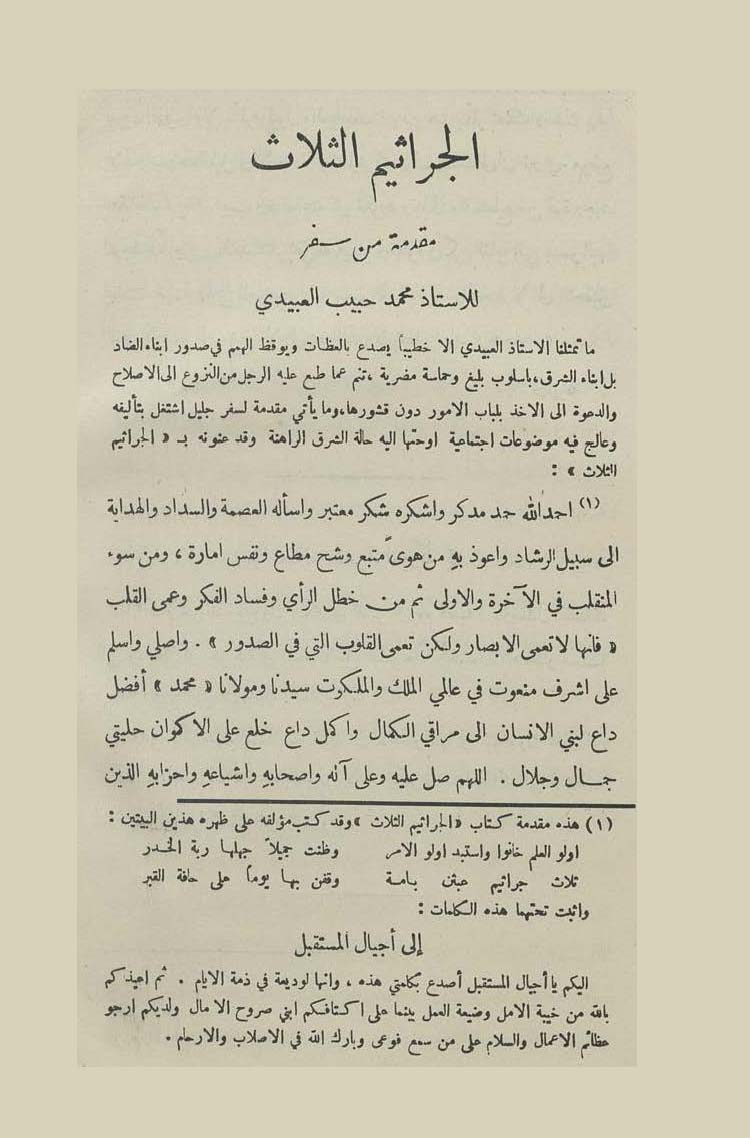 الجراثيم الثلاث
مقدمة من سفر
للاستاذ محمد حبيب العبيدي
ما تمثلنا الاستاذ العبيدي الا خطيباً يصدع بالعظات ويوقظ الهمم في صدور ابناء الضاد
بل ابناء الشرق، باسلوب بليغ وحماسة مضرية، تنم عما طبع عليه الرجل من النزوع الى الاصلاح
والدعوة الى الاخذ بلباب الامور دون قشورها، وما يأتي مقدمة لسفر جليل اشتغل بتأليفه
وعالج فيه موضوعات اجتماعية اوحتها اليه حالة الشرق الراهنة وقد عنونه بـ « الجراثيم
الثلاث » :
(١) احمد الله حمد مدكر واشكره شكر معتبر واسأله العصمة والسداد والهداية
الى سبيل الرشاد واعوذ بهِ من هوىً متبع وشح مطاع ونفس امارة ، ومن سوء
المنقلب في الآخرة والاولى ثم من خطل الرأي وفساد الفكر وعمى القلب
« فانها لا تعمى الابصار ولكن تعمى القلوب التي في الصدور » . واصلي واسلم
على اشرف منعوت في عالمي الملك والملكوت سيدنا ومولانا « محمد » أفضل
داع لبني الانسان الى مراقي الكمال واكمل داع خلع على الاكوان حليتي
جمال وجلال . اللهم صل عليه وعلى آله واصحابهِ واشياعهِ واحزابهِ الذين
(١) هذه مقدمة كتاب «الجراثيم الثلاث» وقد كتب مؤلفه على ظهره هذين البيتين :
اولو العلم خانوا واستبد اولو الامر وظنت جميلاً جهلها ربة الخدر
ثلاث جراثيم عبثن بامة وقفن بها يوماً على حافة القبر
واثبت تحتهما هذه الكلمات :
إلى أجيال المستقبل
اليكم يا أجيال المستقبل أصدع بكلمتي هذه ، وانها لوديعة في ذمة الايام . ثم اعيذكم
بالله من خيبة الامل وضيعة العمل بينما على اكتافكم ابني صروح الآمال ولديكم ارجو
عظائم الاعمال والسلام على من سمع فوعى وبارك الله في الاصلاب والارحام .